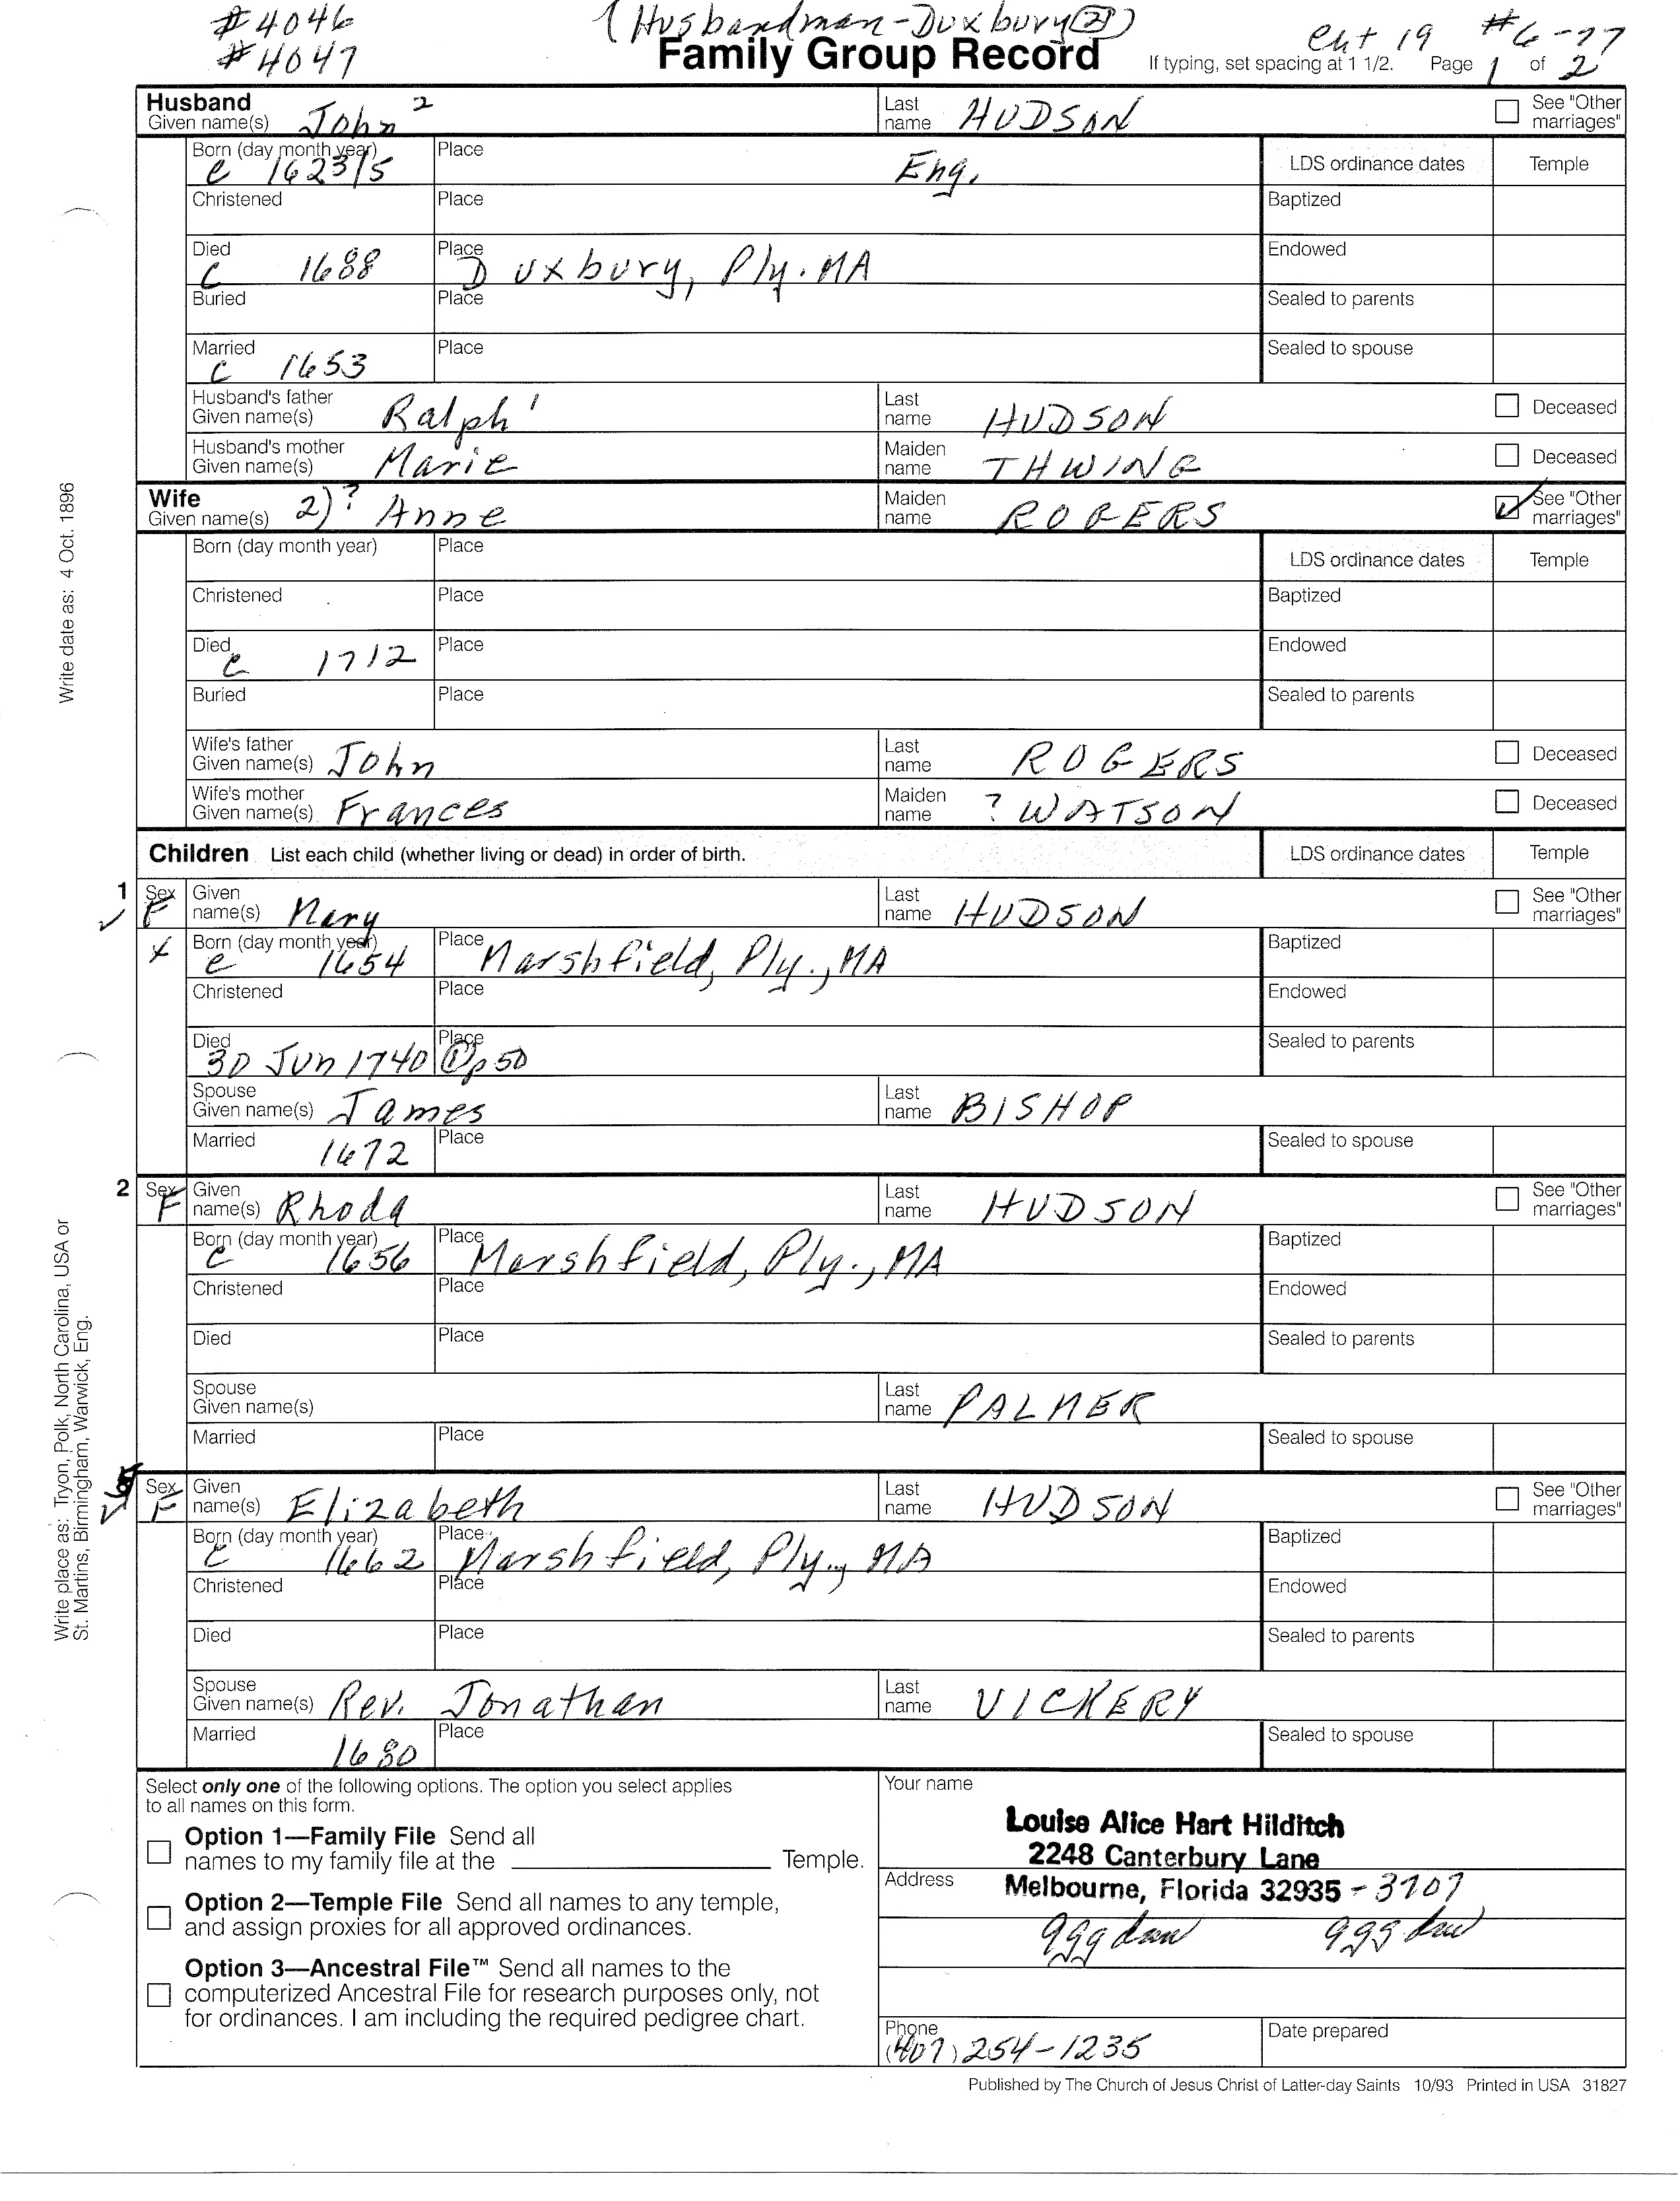 #4046 (Husbandman-Duxbury(2))
#4047 Family Group Record Cht 19 #6-77
If typing, set spacing at 1 1/2. Page 1 of 2
Husband
Given name(s) John 2 Last name HUDSON See "Other marriages"
Born (day month year) c 1623/5 Place Eng. LDS ordinance dates Temple
Christened Place Baptized
Died c 1688 Place Duxbury, Ply. MA Endowed
Buried Place Sealed to parents
Married c 1653 Place Sealed to spouse
Husband's father Given name(s) Ralph 1 Last name HUDSON Deceased
Husband's mother Given name(s) Marie Maiden name THWING Deceased
Wife
Given name(s) 2)? Anne Maiden name ROGERS See "Other marriages"
Born (day month year) Place LDS ordinance dates Temple
Christened Place Baptized
Died c 1712 Place Endowed
Buried Place Sealed to parents
Wife's father Given name(s) John Last name ROGERS Deceased
Wife's mother Given name(s) Frances Maiden name ? WATSON Deceased
Children List each child (whether living or dead) in order of birth. LDS ordinance dates Temple
1 Sex F Given name(s) Mary Last name HUDSON See "Other marriages"
x Born (day month year) c 1654 Place Marshfield, Ply., MA Baptized
Christened Place Endowed
Died 30 Jun 1740 Place (1)p50 Sealed to parents
Spouse Given name(s) James Last name BISHOP
Married 1672 Place Sealed to spouse
2 Sex F Given name(s) Rhoda Last name HUDSON See "Other marriages"
Born (day month year) c 1656 Place Marshfield, Ply., MA Baptized
Christened Place Endowed
Died Place Sealed to parents
Spouse Given name(s) Last name PALMER
Married Place Sealed to spouse
Sex F Given name(s) Elizabeth Last name HUDSON See "Other marriages"
Born (day month year) c 1662 Place Marshfield, Ply., MA Baptized
Christened Place Endowed
Died Place Sealed to parents
Spouse Given name(s) Rev. Jonathan Last name VICKERY
Married 1680 Place Sealed to spouse
Write date as: 4 Oct. 1896
Write place as: Tryon, Polk, North Carolina, USA or
St. Martins, Birmingham, Warwick, Eng.
Select only one of the following options. The option you select applies
to all names on this form.
Option 1—Family File Send all
names to my family file at the Temple.
Option 2—Temple File Send all names to any temple,
and assign proxies for all approved ordinances.
Option 3—Ancestral File™ Send all names to the
computerized Ancestral File for research purposes only, not
for ordinances. I am including the required pedigree chart.
Your name
Louise Alice Hart Hilditch
2248 Canterbury Lane
Address Melbourne, Florida 32935 - 3707
Phone (407) 254-1235 Date prepared
Published by The Church of Jesus Christ of Latter-day Saints 10/93 Printed in USA 31827